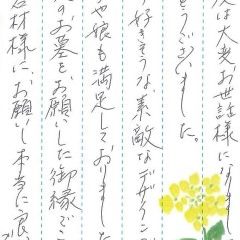 は大変お世話になりまし
うございました。
好きそうな素敵なデザイン
や娘も満足しておりました
のお墓をお願いした御縁でこ
石材様に、お願いし本当に良